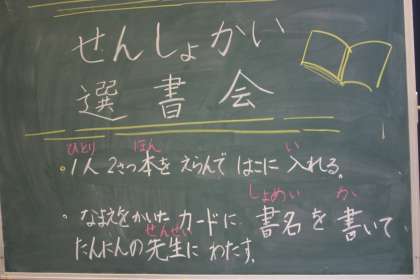 せんしょかい
選書会
ひとり ほん い
・1人 2さつ本を えらんで はこに 入れる。
しょめい か
・なまえをかいた カードに 書名を 書いて
せんせい
たんにんの先生に わたす。